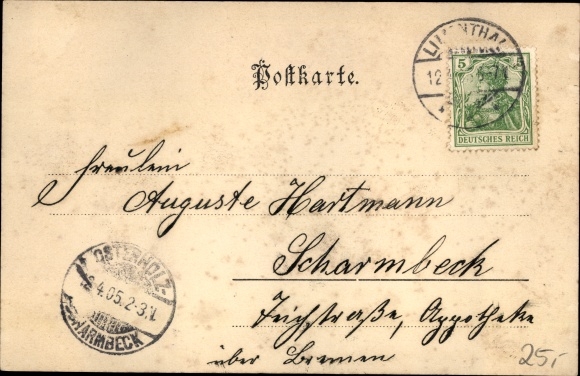 Postkarte.
LILIENTHAL
12
5 5
DEUTSCHES REICH
Fräulein
Auguste Hartmann
Scharmbeck
Teichstraße, Appotheke
über Bremen
OSTERHOLZ-
4.05.2-3.V.
SCHARMBECK
25,-